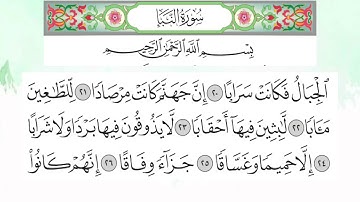 سُورَةُ النَّبَإِ
بِسْمِ اللَّهِ الرَّحْمَٰنِ الرَّحِيمِ
الْجِبَالُ فَكَانَتْ سَرَابًا ٢٠ إِنَّ جَهَنَّمَ كَانَتْ مِرْصَادًا ٢١ لِّلطَّاغِينَ
مَـَٔابًا ٢٢ لَّابِثِينَ فِيهَا أَحْقَابًا ٢٣ لَّا يَذُوقُونَ فِيهَا بَرْدًا وَلَا شَرَابًا
٢٤ إِلَّا حَمِيمًا وَغَسَّاقًا ٢٥ جَزَاءً وِفَاقًا ٢٦ إِنَّهُمْ كَانُوا